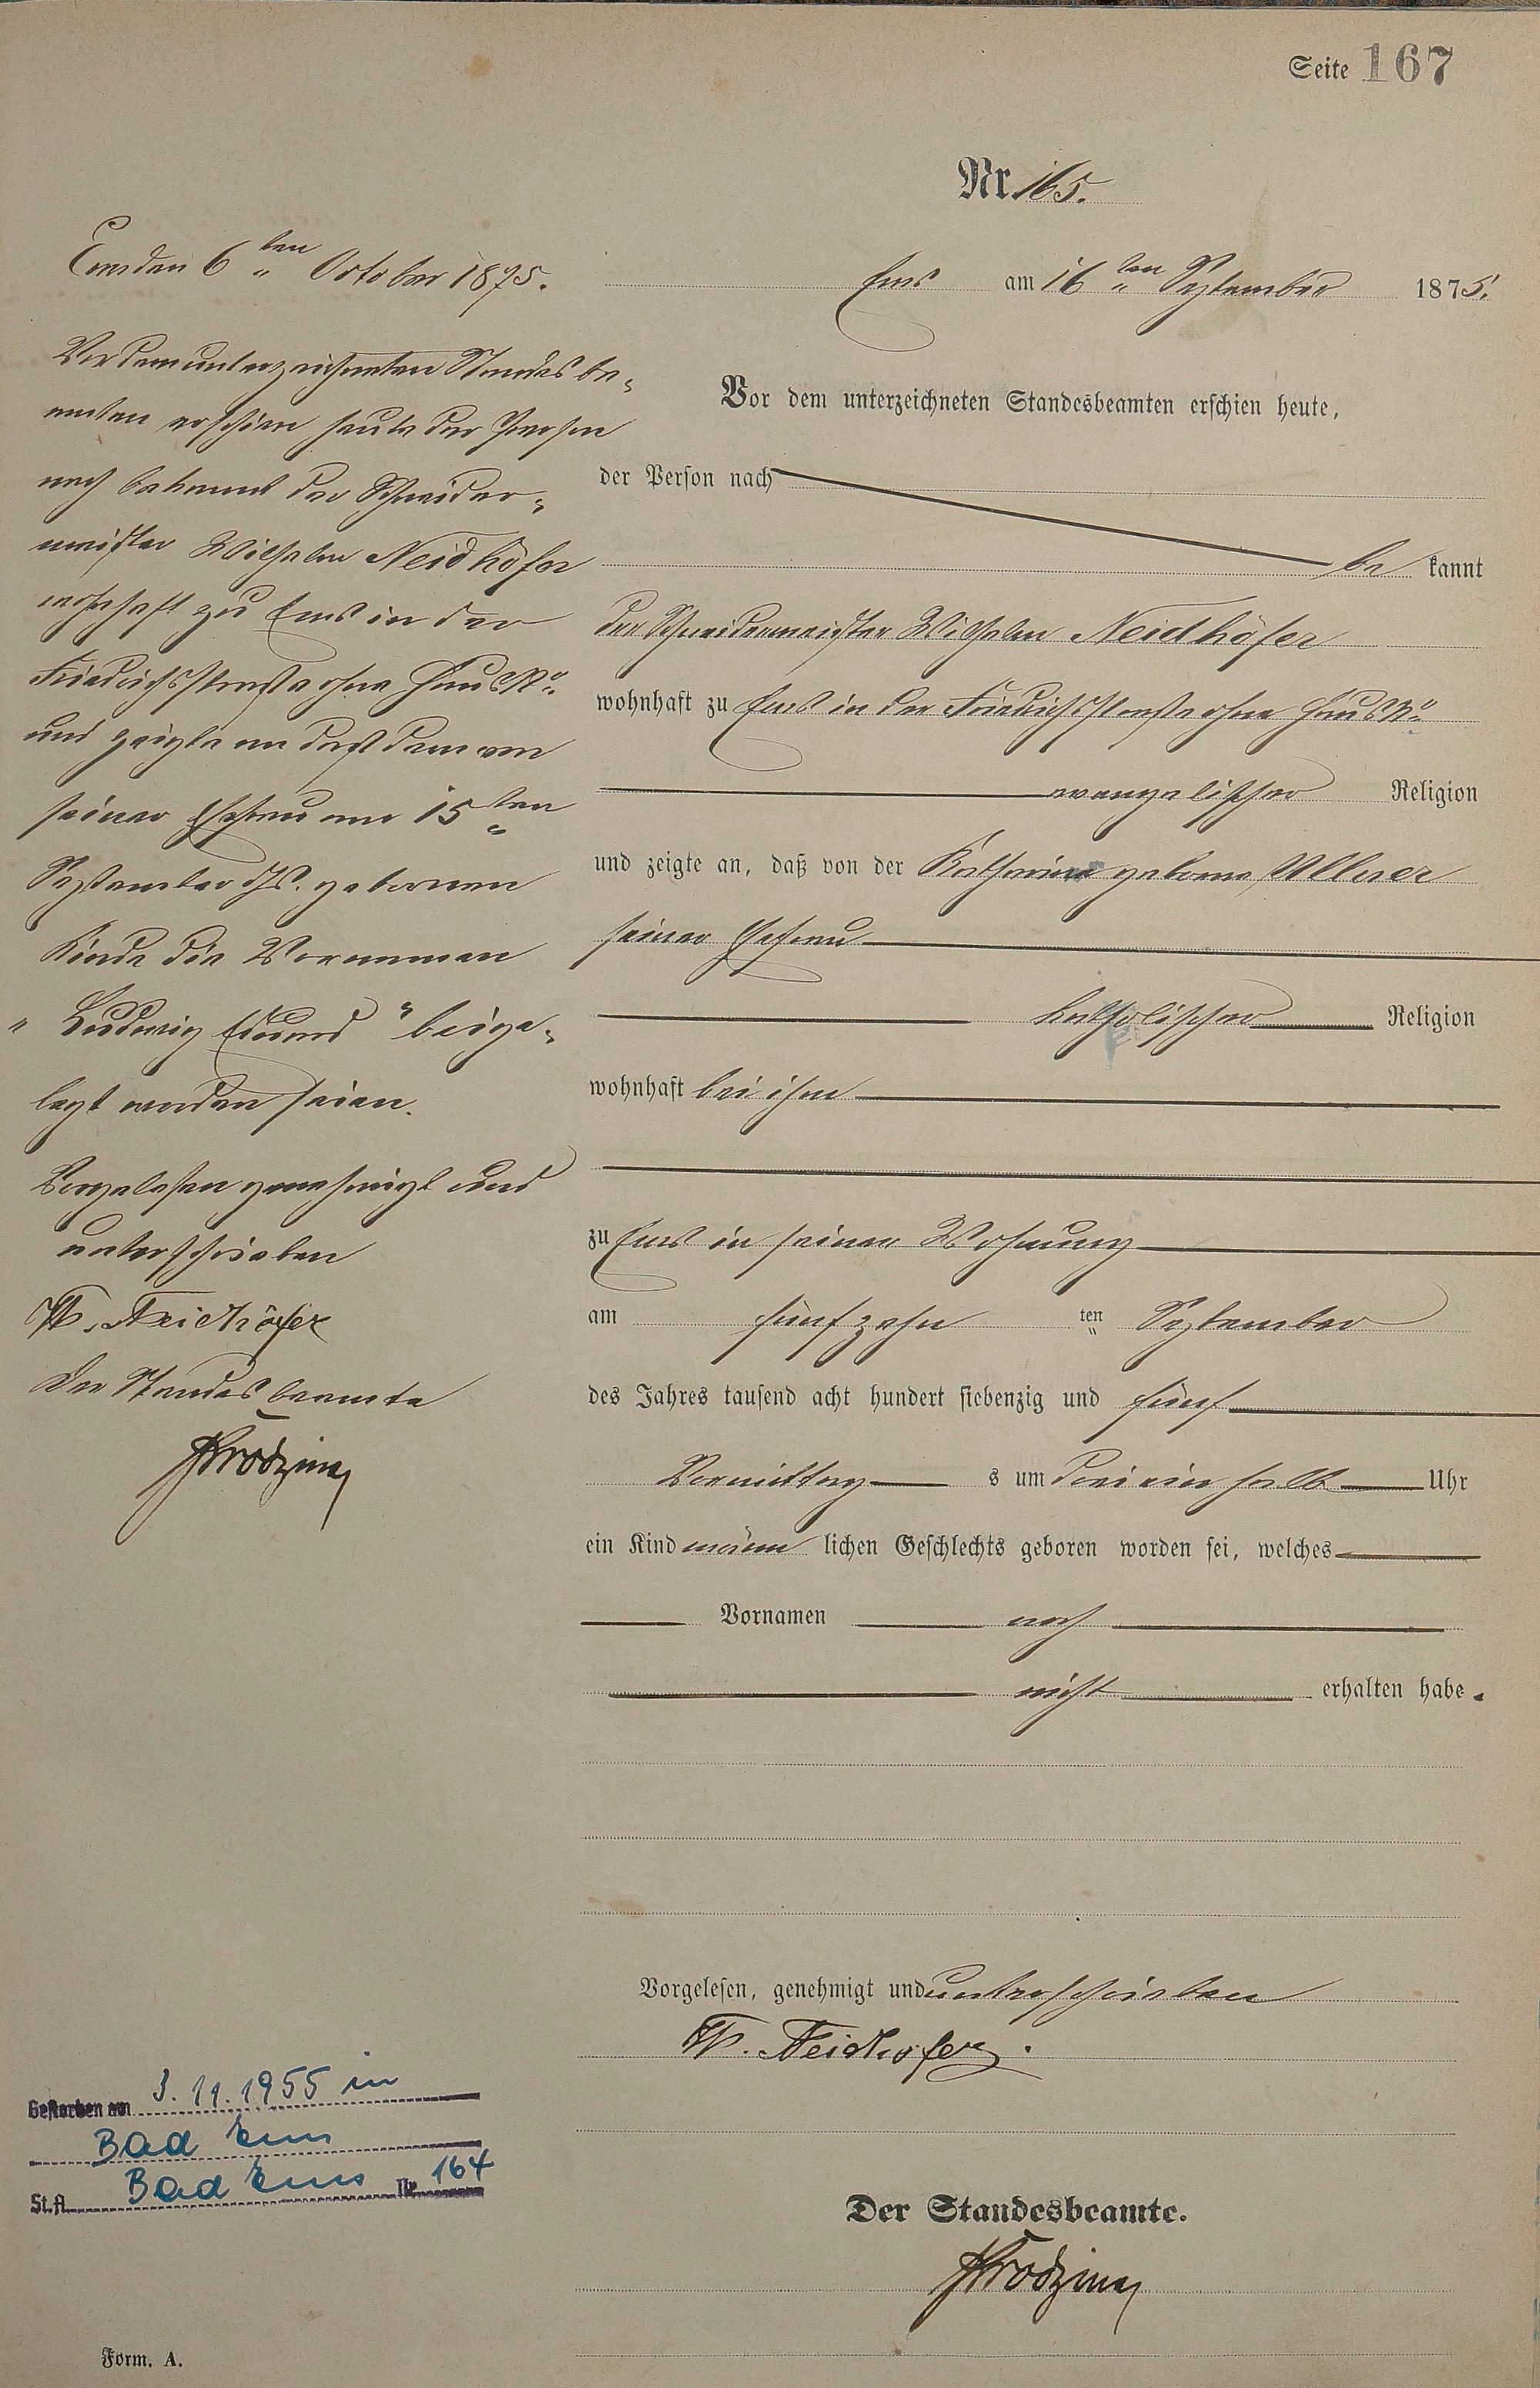 Seite 167
Nr. 165.
Ems am 16ten September 1875.
Vor dem unterzeichneten Standesbeamten erschien heute,
der Person nach
be kannt
der Schneidermeister Wilhelm Neidhöfer
wohnhaft zu Ems in der Friedrichsstraße ohne Haus No
evangelischer Religion
und zeigte an, daß von der Katharina geborne Ullner
seiner Ehefrau
katholischer Religion
wohnhaft bei ihm
zu Ems in seiner Wohnung
am fünfzehn ten September
des Jahres tausend acht hundert siebenzig und fünf
Vormittag s um drei ein halb Uhr
ein Kind männ lichen Geschlechts geboren worden sei, welches
Vornamen noch
nicht erhalten habe.
Vorgelesen, genehmigt und unterschrieben
W. Neidhöfer.
Der Standesbeamte.
Ems den 6ten October 1875.
Vor dem unterzeichneten Standesbe=
amten erschien heute der Person
nach bekannt der Schneider=
meister Wilhelm Neidhöfer
wohnhaft zu Ems in der
Friedrichsstraße ohne Haus No
und zeigte an daß dem von
seiner Ehefrau am 15ten
September d. Js. gebornen
Kinde die Vornamen
"Ludwig Eduard" beige=
legt worden seien.
Vorgelesen genehmigt und
unterschrieben
W. Neidhöfer
Der Standesbeamte
Gestorben am 3. 11. 1955 in
Bad Ems
St.A. Bad Ems Nr. 164
Form. A.